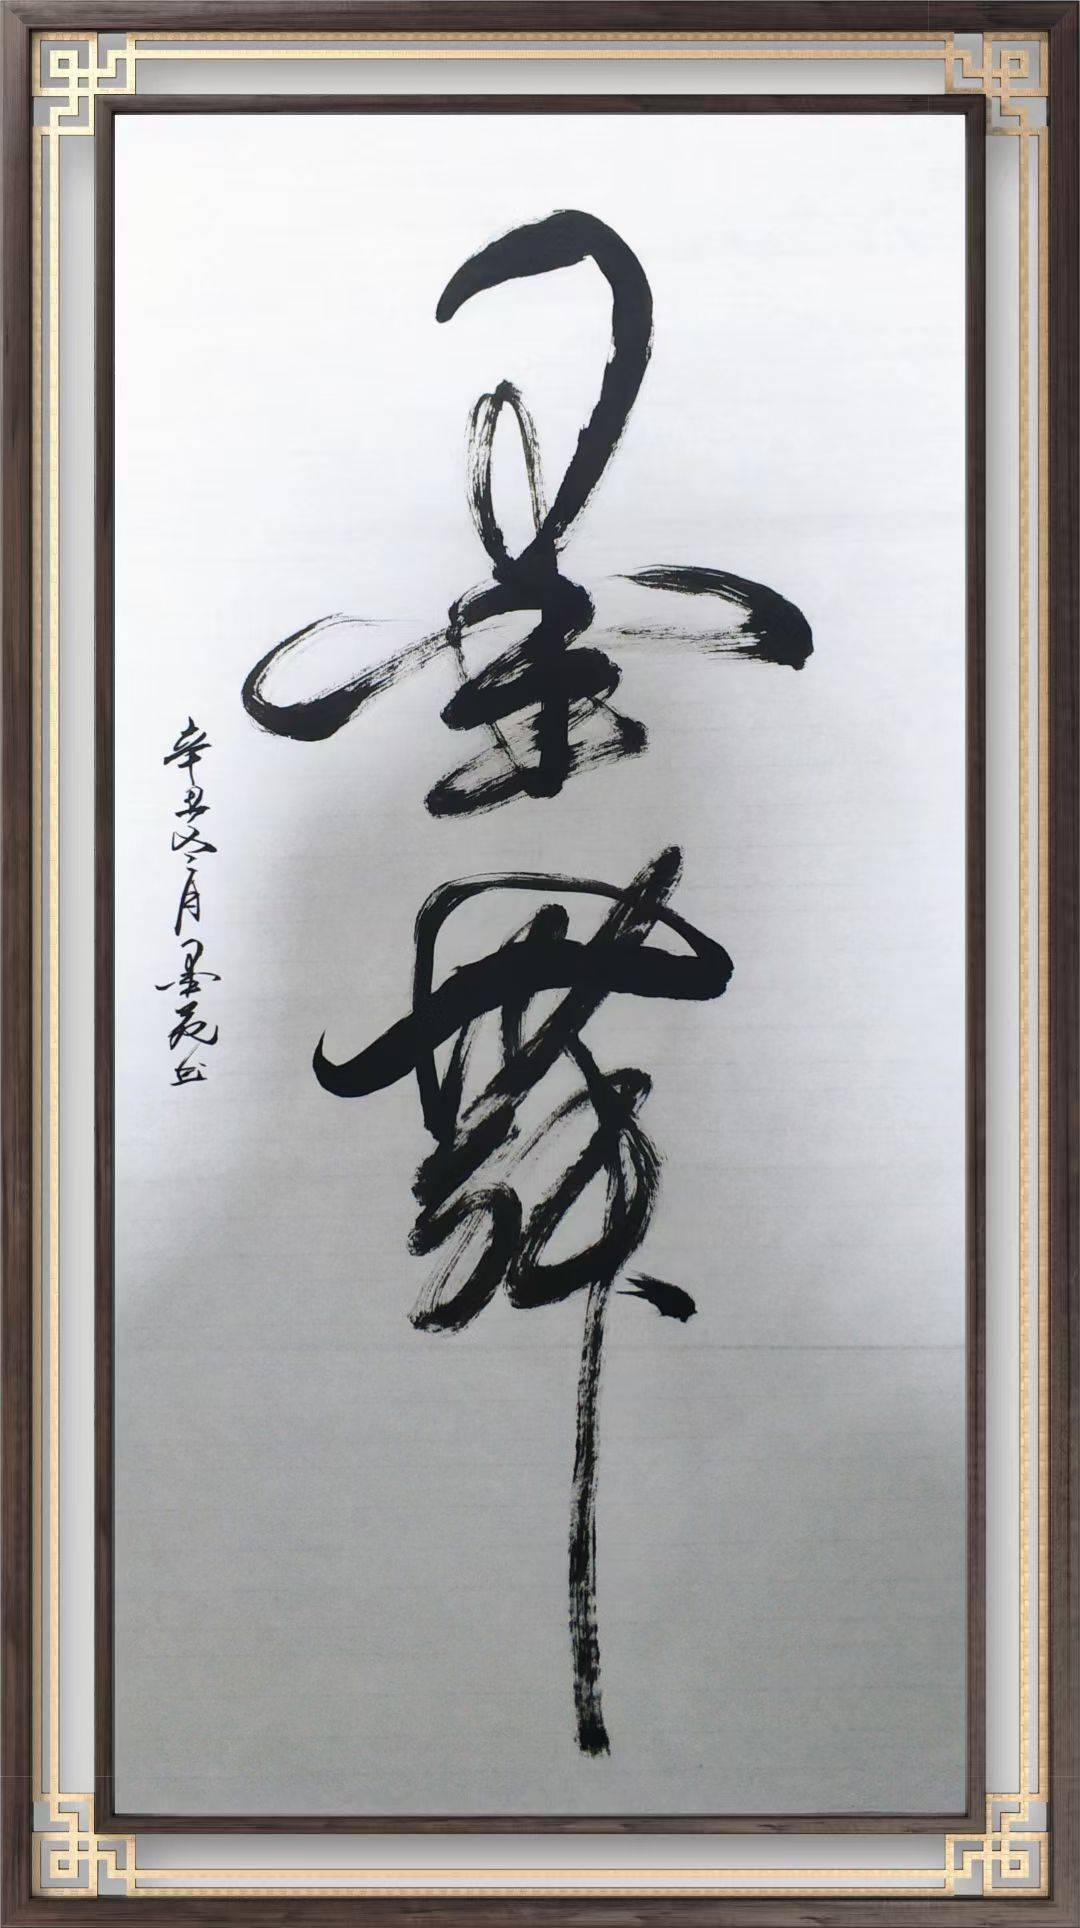 墨舞
辛丑冬月墨苑书